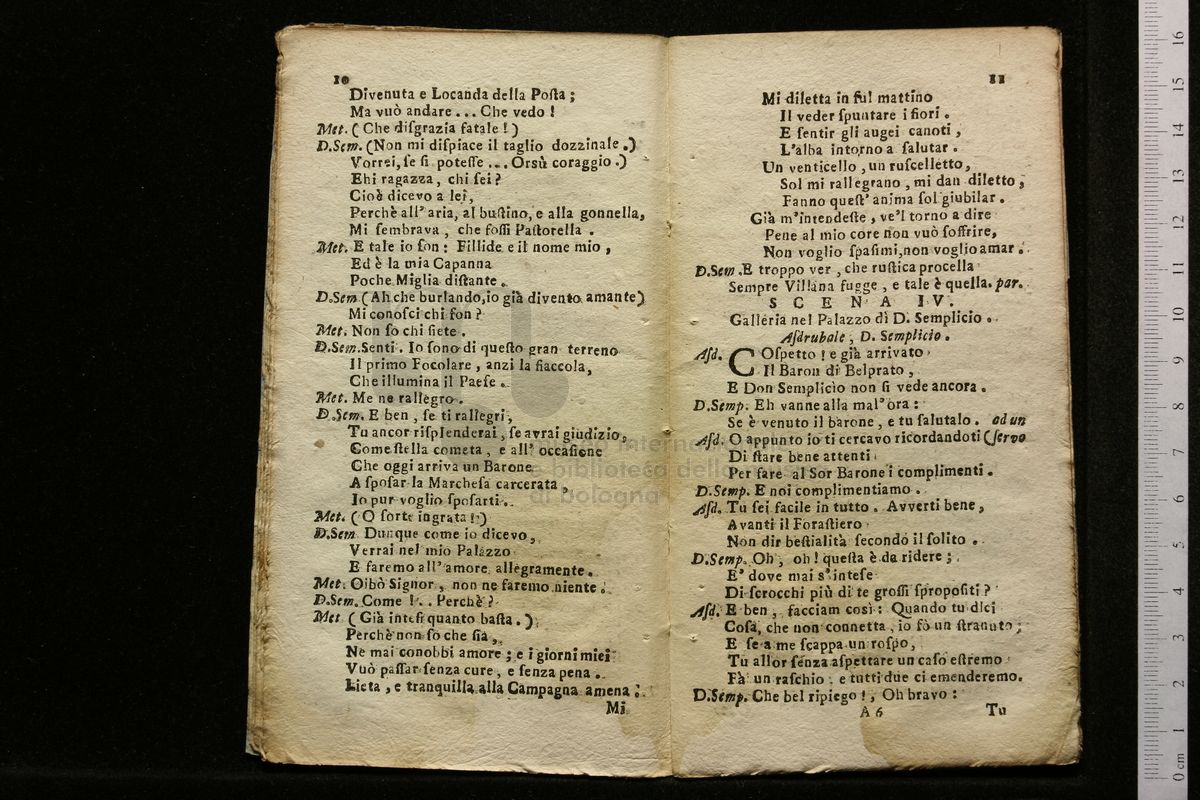 10
Divenuta e Locanda della Poſta ;
Ma vuò andare ... Che vedo !
Met. ( Che diſgrazia fatale ! )
D.Sem. (Non mi diſpiace il taglio dozzinale .)
Vorrei, ſe ſi poteſſe ... Orsù coraggio .)
Ehi ragazza, chi ſei ?
Cioè dicevo a lei,
Perchè all' aria, al buſtino, e alla gonnella,
Mi ſembrava, che foſſi Paſtorella .
Met. E tale io ſon : Fillide e il nome mio ,
Ed è la mia Capanna
Poche Miglia diſtante .
D.Sem (Ah che burlando,io già divento amante)
Mi conoſci chi ſon ?
Met. Non ſo chi ſiete .
D.Sem.Senti . Io ſono di queſto gran terreno
Il primo Focolare, anzi la fiaccola,
Che illumina il Paeſe .
Met. Me ne rallegro .
D.Sem. E ben , ſe ti rallegri ,
Tu ancor riſplenderai , ſe avrai giudizio,
Come ſtella cometa , e all' occaſione
Che oggi arriva un Barone
A ſpoſar la Marcheſa carcerata ,
Io pur voglio ſpoſarti .
Met. ( O ſorte ingrata ! )
D.Sem Dunque come io dicevo,
Verrai nel mio Palazzo
E faremo all' amore allegramente .
Met. Oibò Signor , non ne faremo niente .
D.Sem. Come ! . . Perchè ?
Met ( Già inteſi quanto baſta . )
Perchè non ſo che ſia ,
Ne mai conobbi amore ; e i giorni miei
Vuò paſſar ſenza cure , e ſenza pena .
Lieta , e tranquilla alla Campagna amena :
Mi
11
Mi diletta in ſul mattino
Il veder ſpuntare i fiori .
E ſentir gli augei canoti ,
L'alba intorno a ſalutar .
Un venticello , un ruſcelletto,
Sol mi rallegrano , mi dan diletto ,
Fanno queſt' anima ſol giubilar .
Già m'intendeſte , ve'l torno a dire
Pene al mio core non vuò ſoffrire,
Non voglio ſpaſimi,non voglio amar .
D.Sem.E troppo ver , che ruſtica procella
Sempre Villana fugge , e tale è quella. par.
S C E N A IV.
Galleria nel Palazzo di D. Semplicio .
Aſdrubale , D. Semplicio .
Aſd. COſpetto ! e già arrivato
Il Baron di Belprato ,
E Don Semplicio non ſi vede ancora .
D.Semp. Eh vanne alla mal'ora :
Se è venuto il barone , e tu ſalutalo . ad un
Aſd. O appunto io ti cercavo ricordandoti (ſervo
Di ſtare bene attenti
Per fare al Sor Barone i complimenti .
D.Semp. E noi complimentiamo .
Aſd. Tu ſei facile in tutto . Avverti bene ,
Avanti il Foraſtiero
Non dir beſtialità ſecondo il ſolito .
D.Semp. Oh , oh ! queſta è da ridere ;
E' dove mai s'inteſe
Di ſcrocchi più di te groſſi ſpropoſiti ?
Aſd. E ben , facciam così : Quando tu dici
Coſa, che non connetta , io fò un ſtranuto ;
E ſe a me ſcappa un roſpo,
Tu allor ſenza aſpettare un caſo eſtremo
Fà un raſchio , e tutti due ci emenderemo.
D.Semp. Che bel ripiego ! , Oh bravo :
A 6 Tu